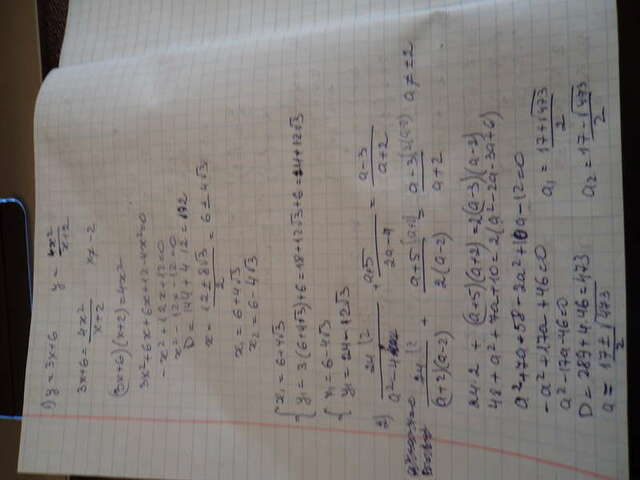 1) y = 3x+6   y = 4x²/(x+2)
3x+6 = 4x²/(x+2)   x ≠ -2
(3x+6)(x+2) = 4x²
3x²+6x+6x+12-4x²=0
-x²+12x+12=0
x²-12x-12=0
D = 144+4·12=192
x = (12±8√3)/2 = 6±4√3
x₁ = 6+4√3
x₂ = 6-4√3
{ x₁ = 6+4√3
y₁ = 3(6+4√3)+6=18+12√3+6=24+12√3
{ x₁ = 6-4√3
y₁ = 24-12√3
2) 24/(a²-4) + (a+5)/(2a-4) = (a-3)/(a+2)
24/((a+2)(a-2)) + (a+5)/(2(a-2)) = (a-3)/(a+2)   a ≠ ±2
24·2 + (a+5)(a+2) = 2(a-3)(a-2)
48+a²+7a+10=2(a²-2a-3a+6)
a²+7a+58-2a²+10a-12=0
-a²+17a+46=0
a²-17a-46=0
D=289+4·46=473
a = (17±√473)/2
a₁ = (17+√473)/2
a₂ = (17-√473)/2